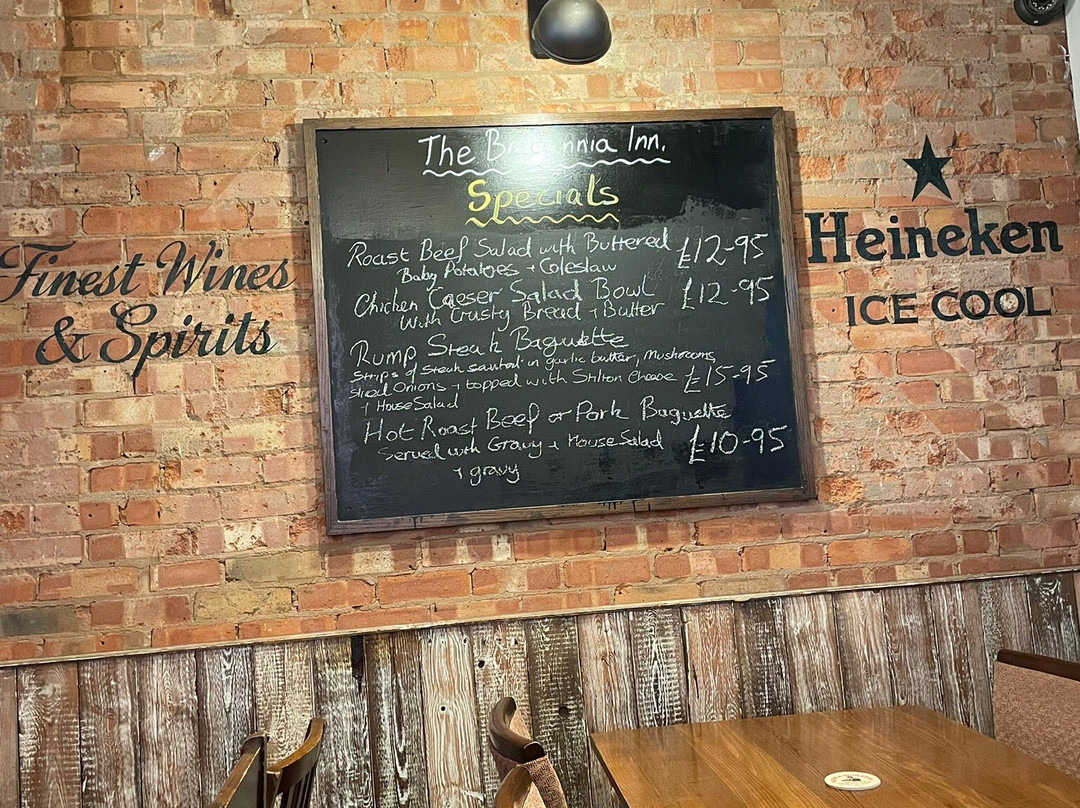 The Britannia Inn.
Specials
Roast Beef Salad with Buttered £12-95
Baby Potatoes + Coleslaw
Chicken Caeser Salad Bowl £12-95
With Crusty Bread + Butter
Rump Steak Baguette
Strips of Steak sauted in garlic butter, Mushrooms,
sliced Onions + topped with Stilton Cheese £15-95
+ House Salad
Hot Roast Beef or Pork Baguette
Served with Gravy + House Salad £10-95
+ gravy
Finest Wines
& Spirits
Heineken
ICE COOL